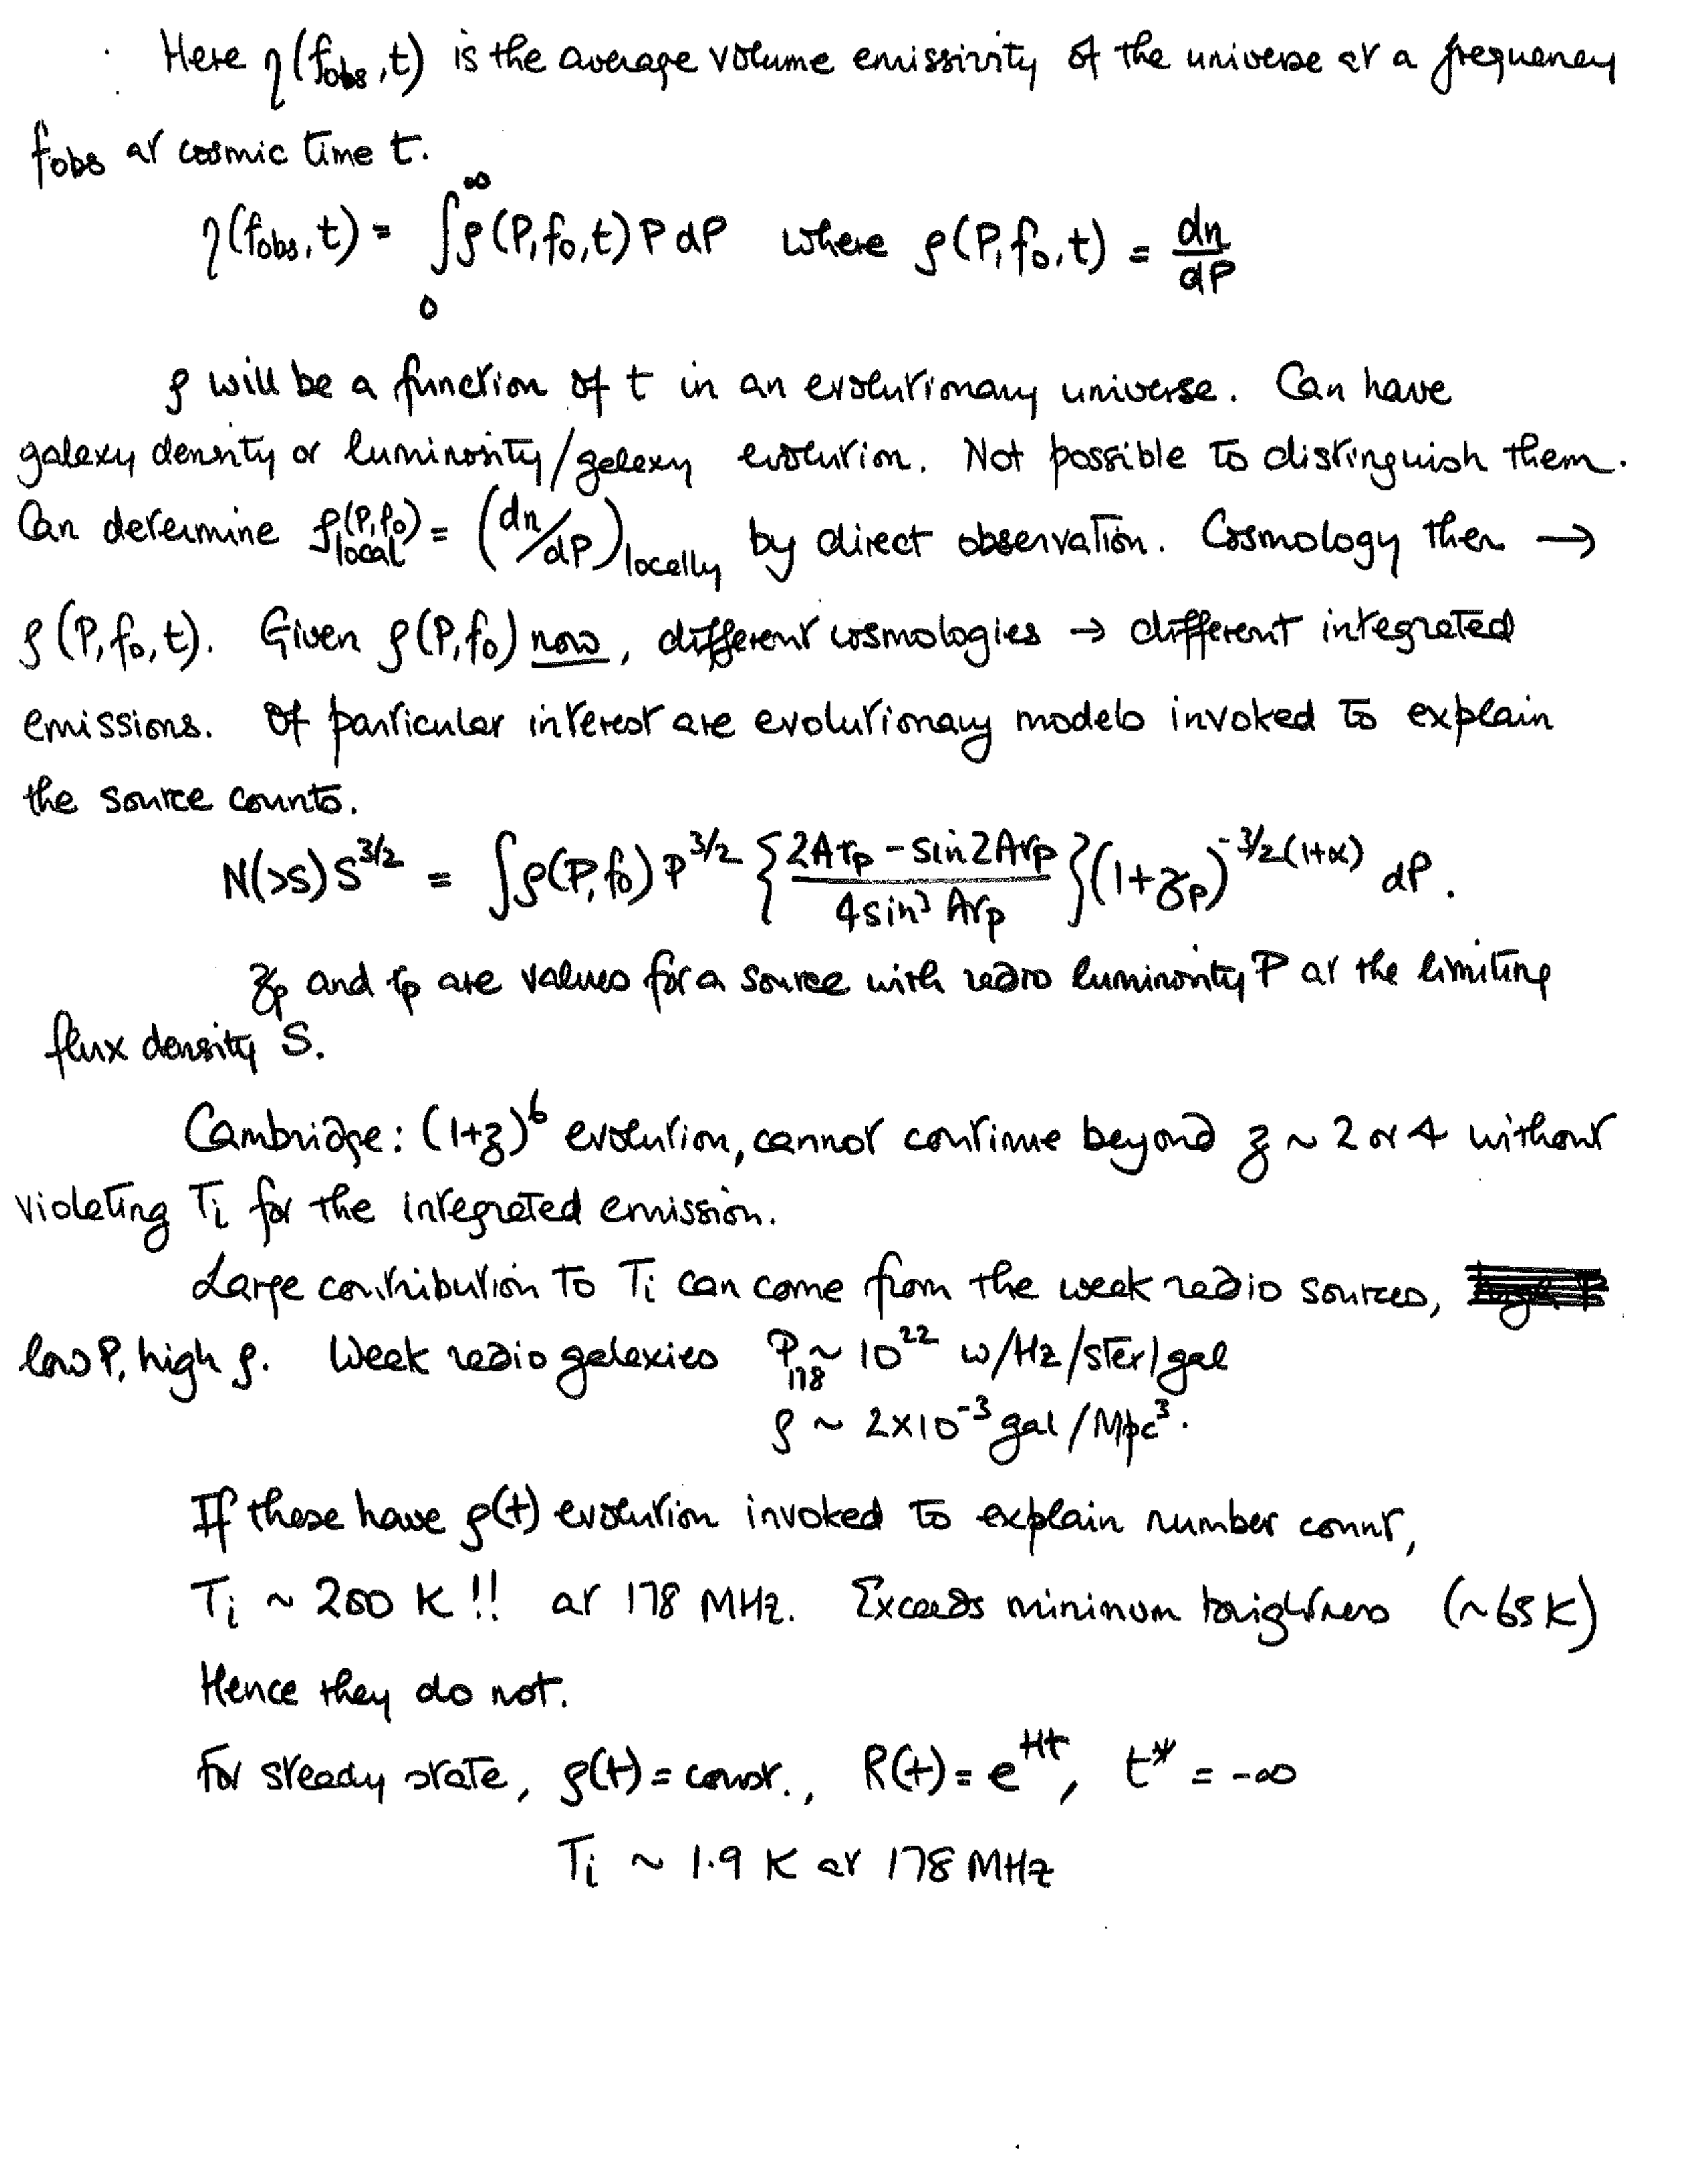 Here η(fobs,t) is the average volume emissivity of the universe at a frequency
fobs at cosmic time t.
η(fobs,t) = ∫₀^∞ ρ(P,f₀,t) P dP where ρ(P,f₀,t) = dn/dP
ρ will be a function of t in an evolutionary universe. Can have
galaxy density or luminosity/galaxy evolution. Not possible to distinguish them.
Can determine ρlocal(P,f₀) = (dn/dP)locally by direct observation. Cosmology then →
ρ(P,f₀,t). Given ρ(P,f₀) now, different cosmologies → different integrated
emissions. Of particular interest are evolutionary models invoked to explain
the source counts.
N(>S) S^3/2 = ∫ρ(P,f₀) P^3/2 {(2Arp - sin2Arp)/(4sin³Arp)} (1+zp)^-3/2(1+α) dP.
zp and rp are values for a source with radio luminosity P at the limiting
flux density S.
Cambridge: (1+z)^6 evolution, cannot continue beyond z ~ 2 or 4 without
violating Ti for the integrated emission.
Large contribution to Ti can come from the weak radio sources,
low P, high ρ. Weak radio galaxies P178 ~ 10^22 W/Hz/ster/gal
ρ ~ 2×10^-3 gal/Mpc³.
If these have ρ(t) evolution invoked to explain number count,
Ti ~ 200 K!! at 178 MHz. Exceeds minimum brightness (~65K)
Hence they do not.
For steady state, ρ(t) = const., R(t) = e^Ht, t* = -∞
Ti ~ 1.9 K at 178 MHz